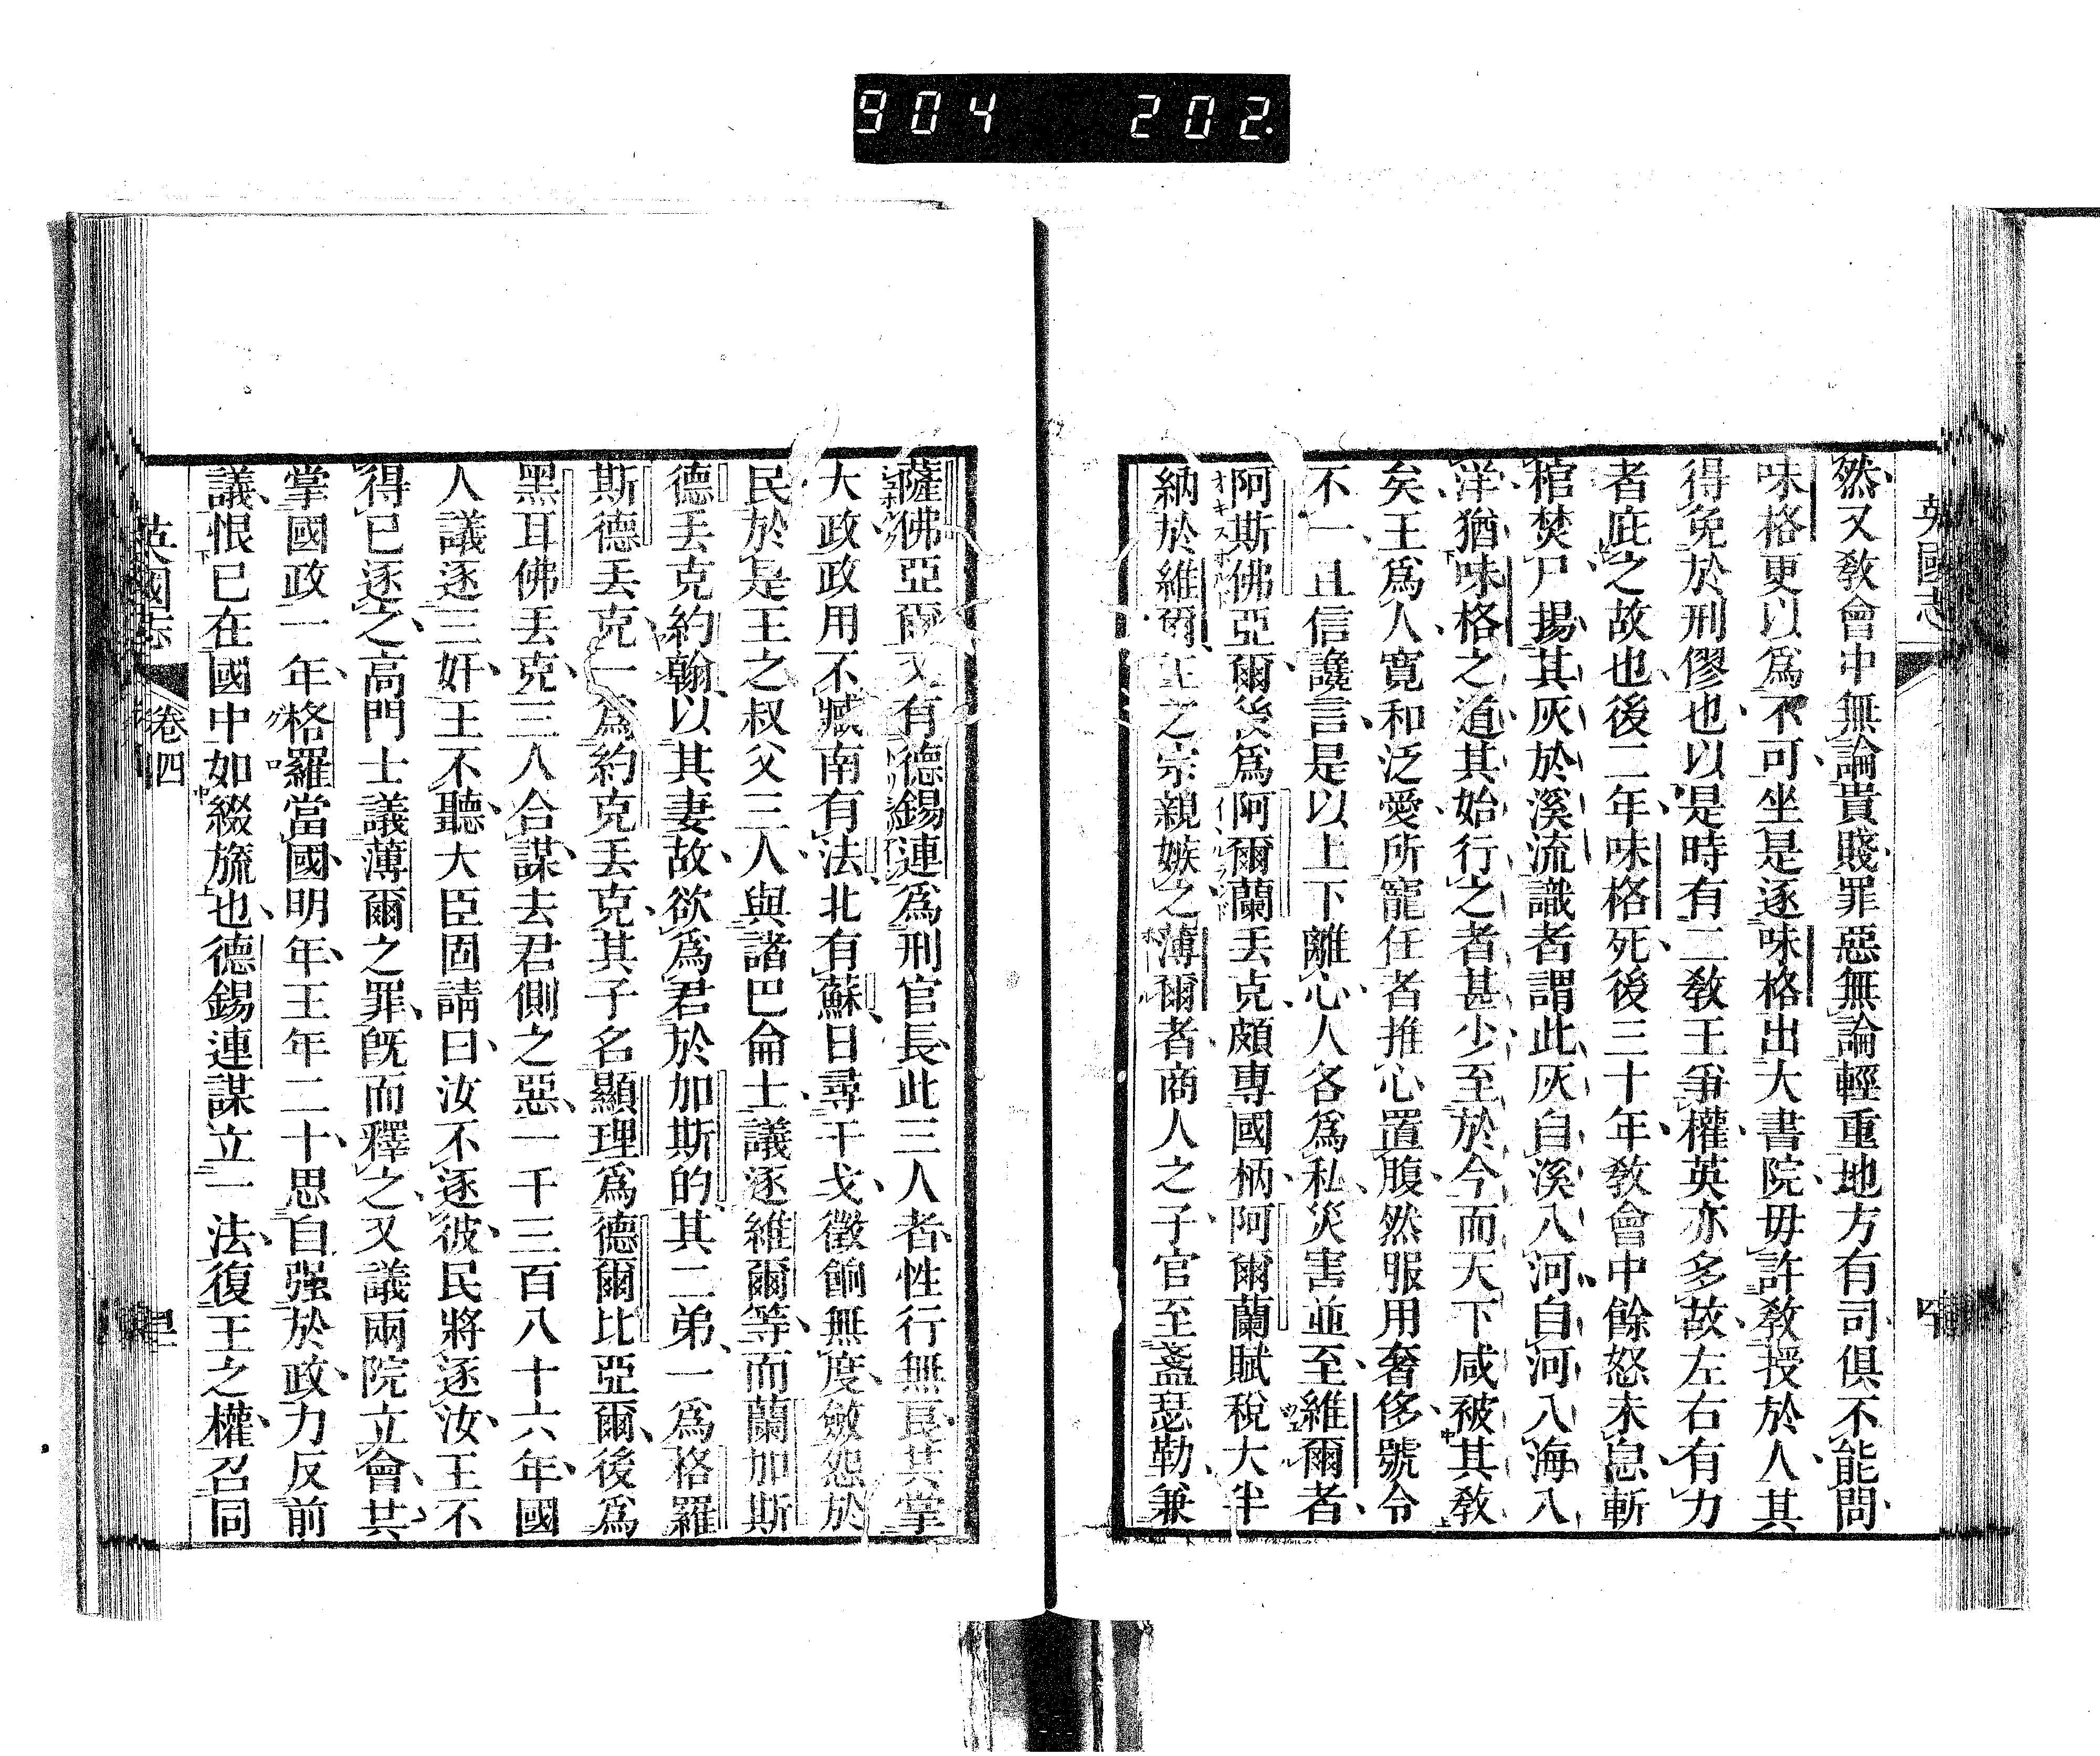 904 202.
英國志
然又敎會中無論貴賤罪惡無論輕重地方有司俱不能問
味格更以爲不可坐是逐味格出大書院毋許敎授於人其
得免於刑僇也以是時有二敎王爭權英亦多故左右有力
者庇之故也後二年味格死後三十年敎會中餘怒未息斬
棺焚尸揚其灰於溪流識者謂此灰自溪入河自河入海入
洋猶味格之道其始行之者甚少至於今而天下咸被其敎
矣王爲人寛和泛愛所寵任者推心置腹然服用奢侈號令
不一且信讒言是以上下離心人各爲私災害並至維爾者
阿斯佛亞爾後爲阿爾蘭丟克頗專國柄阿爾蘭賦稅大半
納於維爾王之宗親嫉之薄爾者商人之子官至盞瑟勒兼
薩佛亞爾又有德錫連爲刑官長此三人者性行無良其掌
大政政用不臧南有法北有蘇日尋干戈徵餉無度斂怨於
民於是王之叔父三人與諸巴侖士議逐維爾等而蘭加斯
德丟克約翰以其妻故欲爲君於加斯的其二弟一爲格羅
斯德丟克一爲約克丟克其子名顯理爲德爾比亞爾後爲
黑耳佛丟克三人合謀去君側之惡一千三百八十六年國
人議逐三奸王不聽大臣固請曰汝不逐彼民將逐汝王不
得已逐之高門士議薄爾之罪旣而釋之又議兩院立會共
掌國政一年格羅當國明年王年二十思自强於政力反前
議恨已在國中如綴旒也德錫連謀立一法復王之權召同
英國志 卷四